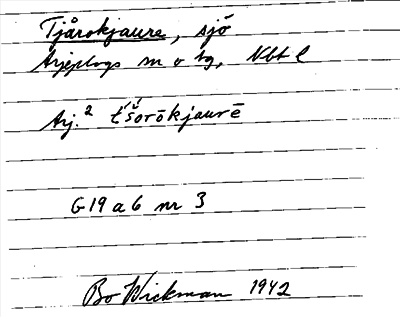 Tjårokjaure, sjö
Arjeplogs sn o tg, Nbt l
Arj.² t́šorōkjaurē
G19 a6 nr 3
Bo Wickman 1942